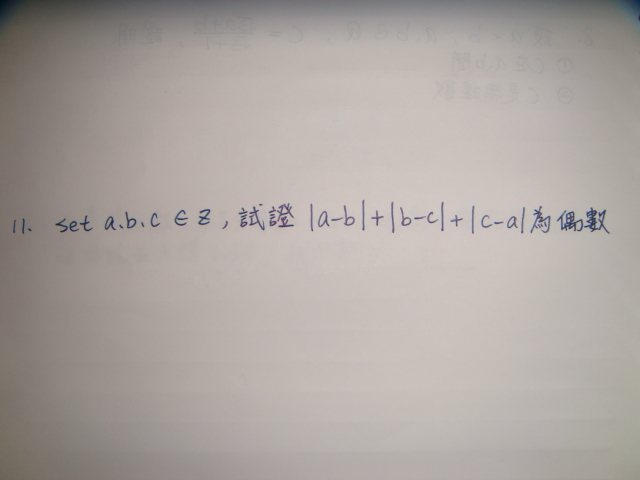 11. set a.b.c ∈ Z , 試證 |a-b|+|b-c|+|c-a| 為偶數